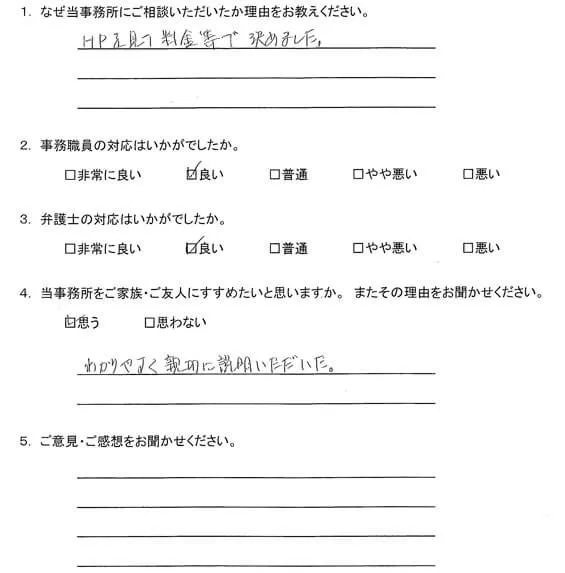 1. なぜ当事務所にご相談いただいたか理由をお教えください。
HPを見て料金等で決めました。
2. 事務職員の対応はいかがでしたか。
□非常に良い ☑良い □普通 □やや悪い □悪い
3. 弁護士の対応はいかがでしたか。
□非常に良い ☑良い □普通 □やや悪い □悪い
4. 当事務所をご家族・ご友人にすすめたいと思いますか。 またその理由をお聞かせください。
☑思う □思わない
わかりやすく親切に説明いただいた。
5. ご意見・ご感想をお聞かせください。